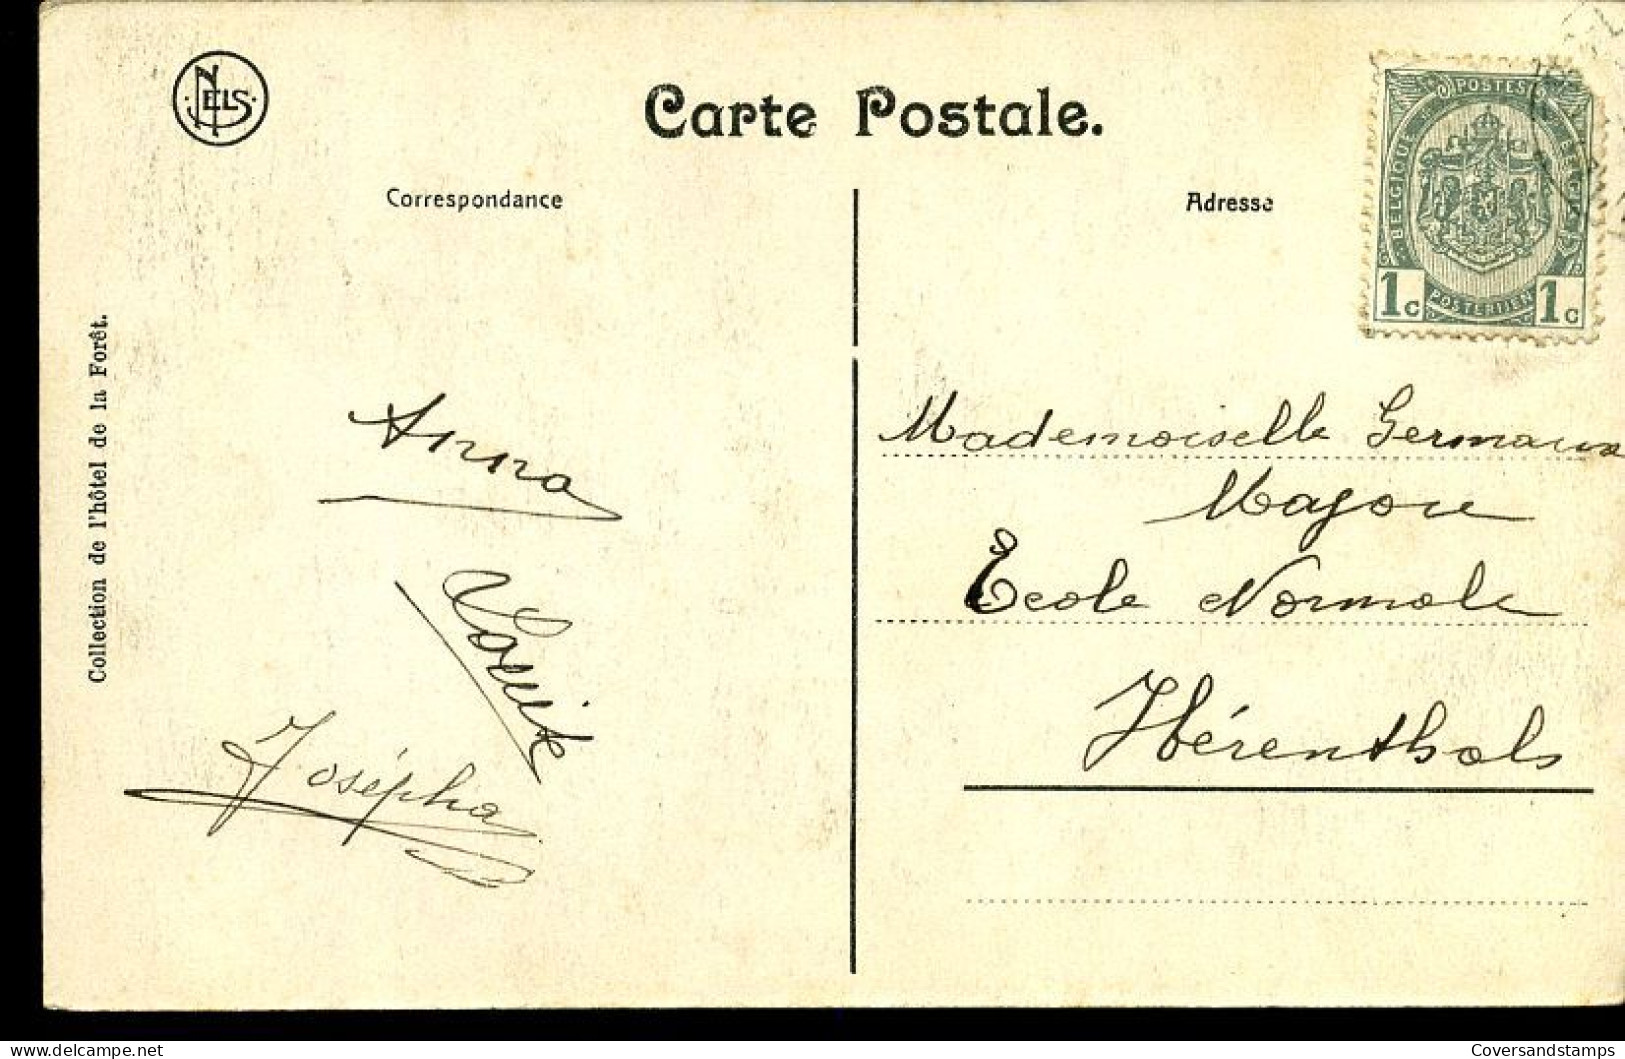 NELS
Carte Postale.
Correspondance
Adresse
POSTES
BELGIQUE
BELGIE
1c POSTERIJEN 1c
Collection de l'hôtel de la Forêt.
Anna
Louise
Josépha
Mademoiselle Germaine
Majore
Ecole Normale
Hérenthals
delcampe.net
Coversandstamps